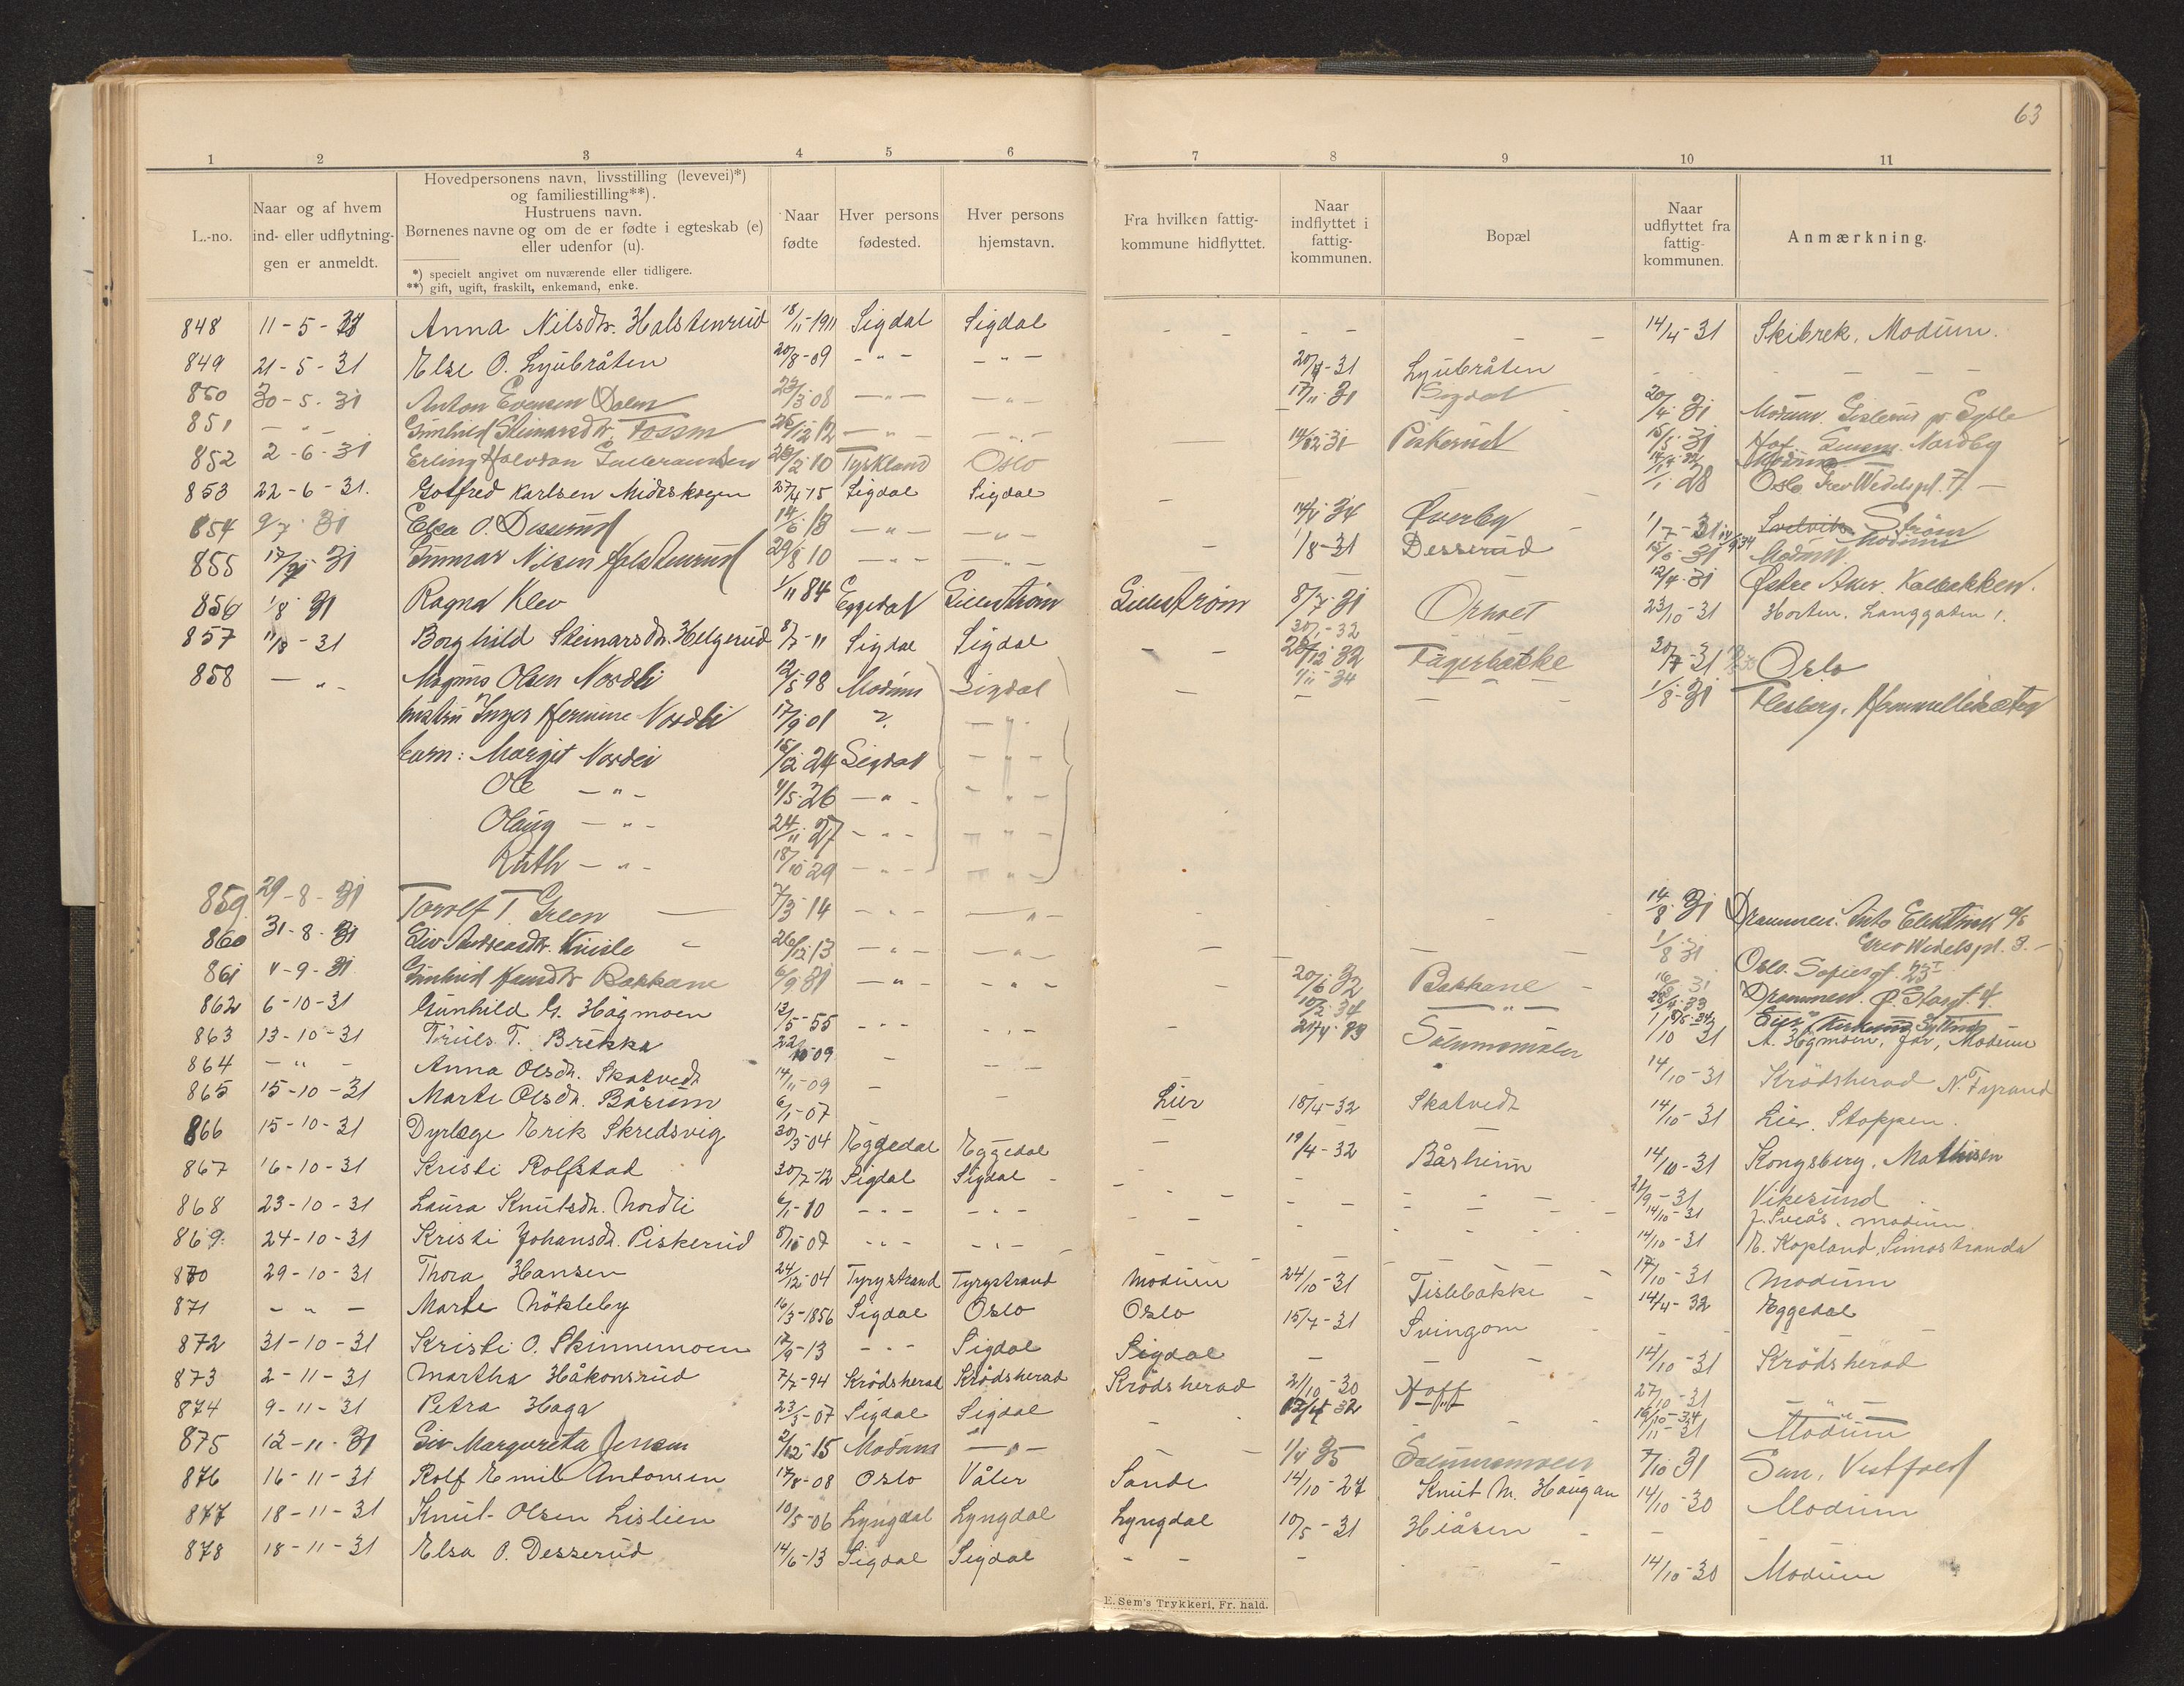 63
1 2 3 4 5 6 7 8 9 10 11
L.-no.
Naar og af hvem
ind- eller udflytning-
gen er anmeldt.
Hovedpersonens navn, livsstilling (levevei)*)
og familiestilling**).
Hustruens navn.
Børnenes navne og om de er fødte i egteskab (e)
eller udenfor (u).
*) specielt angivet om nuværende eller tidligere.
**) gift, ugift, fraskilt, enkemand, enke.
Naar
fødte
Hver persons
fødested.
Hver persons
hjemstavn.
Fra hvilken fattig-
kommune hidflyttet.
Naar
indflyttet i
fattig-
kommunen.
Bopæl
Naar
udflyttet fra
fattig-
kommunen.
Anmærkning.
848 11-5- Anna Nilsdtr. Halstenrud 18/11-1911 Sigdal Sigdal - - - - - 14/4-31 Skibrek, Modum.
849 21-5-31 Else O. Lyubråten 20/8-09 -"- -"- 20/4-31 Lyubråten - - - -
850 30-5-31 Anton Evensen Dalen 23/3 08 -"- -"- 17/11 31 Sigdal 20/4 31 Modum.
851 -"- Gunhild Steinarsdtr. Fossm 26/12 12 -"- -"- 14/12 31 Piskerud 15/5 31 Hof Nordby
852 2-6-31 Erling Halvdan 26/2 10 Tyskland Oslo Modum
853 22-6-31. Gotfred Karlsen Mideskogen 27/4-15 Sigdal Sigdal - 1/1 28 Oslo Grev Wedels pl. 7. -
854 9/7 31 Elsa O. Desserud 14/6 13 -"- -"- 14/4 34 Øverby 1/7-31 Svelvik Strøm
855 17/7 31 Gunnar Nilsen Halstenrud 29/8 10 -"- -"- - 1/8-31 Desserud 15/6 31 Modum
856 1/8 31 Ragna Klev 1/11 84 Eggedal Lillestrøm Lillestrøm 8/7 31 Ørholt 12/4 31 Østre Aker. Kalbakken.
857 11/8-31 Borghild Steinarsdtr. Helgerud 8/7-11 Sigdal Sigdal - - 30/1-32 23/10-31 Horten. Langgaten 1.
858 -"- Magnus Olsen Nordli 12/5 98 Modum Sigdal 26/12 32 Fagerbakke 30/7-31 Oslo
1/11-34 - - 1/8-31 Flesberg.
hustru Inger Hermine Nordli 17/9 01 ? -"-
barn: Margit Nordli 15/12 24 Sigdal -"-
Ole -"- 4/5 26 -"- -"-
Olaug -"- 24/11 27 -"- -"-
Ruth -"- 18/10 29 -"- -"-
859 29-8-31 Torolf T. Green 7/3 14 -"- -"- 14/8 31 Drammen. Auto Elektrisk a/s
860 31-8-31 Liv Andreasdtr. Kinsle 26/12 13 -"- -"- 1/8 31 Grev Wedels pl. 3.-
861 4-9-31 Gunhild Bakkane 6/9 31 -"- -"- 20/6 32 Bakkane Oslo. Sofiesgt. 23
862 6-10-31 Gunhild G. Hågmoen 12/5-55 -"- -"- 10/2 34 -"- 16/8 31 Drammen.
863 13-10-31 Truls T. Brekka 22/10-09 - 21/4 33 Solumsmoen 1/10 31 A. Hågmoen, Modum
864 -"- Anna Olsdtr. Skatvedt 14/11-09 - 14/10-31 Krødsherad N. Fyrand
865 15-10-31 Marte Olsdtr. Båsum 6/1-07 - Lier 18/4-32 Skatvedt 14/10-31 Lier. Stoppen.
866 15-10-31 Dyrlæge Erik Skredsvig 30/3-04 Eggedal Eggedal - 19/4-32 Båsheim 14/10-31 Kongsberg, Mathisen
867 16-10-31 Kristi Rolfstad 30/7-12 Sigdal Sigdal - - - 21/9-31 Vikersund
868 23-10-31 Laura Knutsdtr. Nordli 6/1-10 -"- -"- - - 14/10-31 J. Sveås. Modum.
869 24-10-31 Kristi Johansdtr. Piskerud 8/10 07 -"- -"- - - 14/10-31 E. Kopland, Simostranda
870 29-10-31 Thora Hansen 24/12-04 Tyrystrand Tyrystrand Modum 24/10-31 Fislebakke 17/10-31 Modum
871 -"- Marte Nøkleby 16/3-1856 Sigdal Oslo Oslo 15/7-31 Svingom 14/4-32 Eggedal
872 31-10-31 Kristi O. Skinnemoen 17/9-13 -"- Sigdal Sigdal - - 14/10-31 Krødsherad
873 2-11-31 Martha Håkonsrud 7/7-94 Krødsherad Krødsherad Krødsherad 2/10-30 Hoff 27/10-31 -"-
874 9-11-31 Petra Haga 23/3-07 Sigdal Sigdal - 12/4 32 -"- 16/11-31 Modum
875 12-11-31 Liv Margareta Jensen 2/12-15 Modum -"- - 1/4 35 Solumsmoen 7/10 31 San, Vestfold
876 16-11-31 Rolf Emil Antonsen 17/8-08 Oslo Våler Sande 14/10-27 Knut M. Haugan 14/10-30 Modum
877 18-11-31 Knut Olsen Lislien 10/5-06 Lyngdal Lyngdal Lyngdal 10/5-31 Hiåsen - - -
878 18-11-31 Elsa O. Desserud 14/6-13 Sigdal Sigdal - - - - 14/10-30 Modum
E. Sem's Trykkeri, Fr. hald.